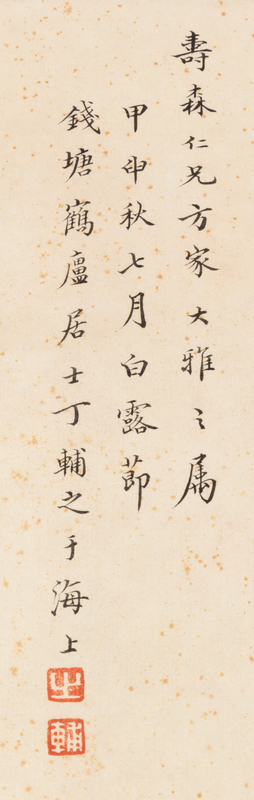 壽森仁兄方家大雅之属
甲申秋七月白露節
錢塘鶴廬居士丁輔之于海上
之
輔